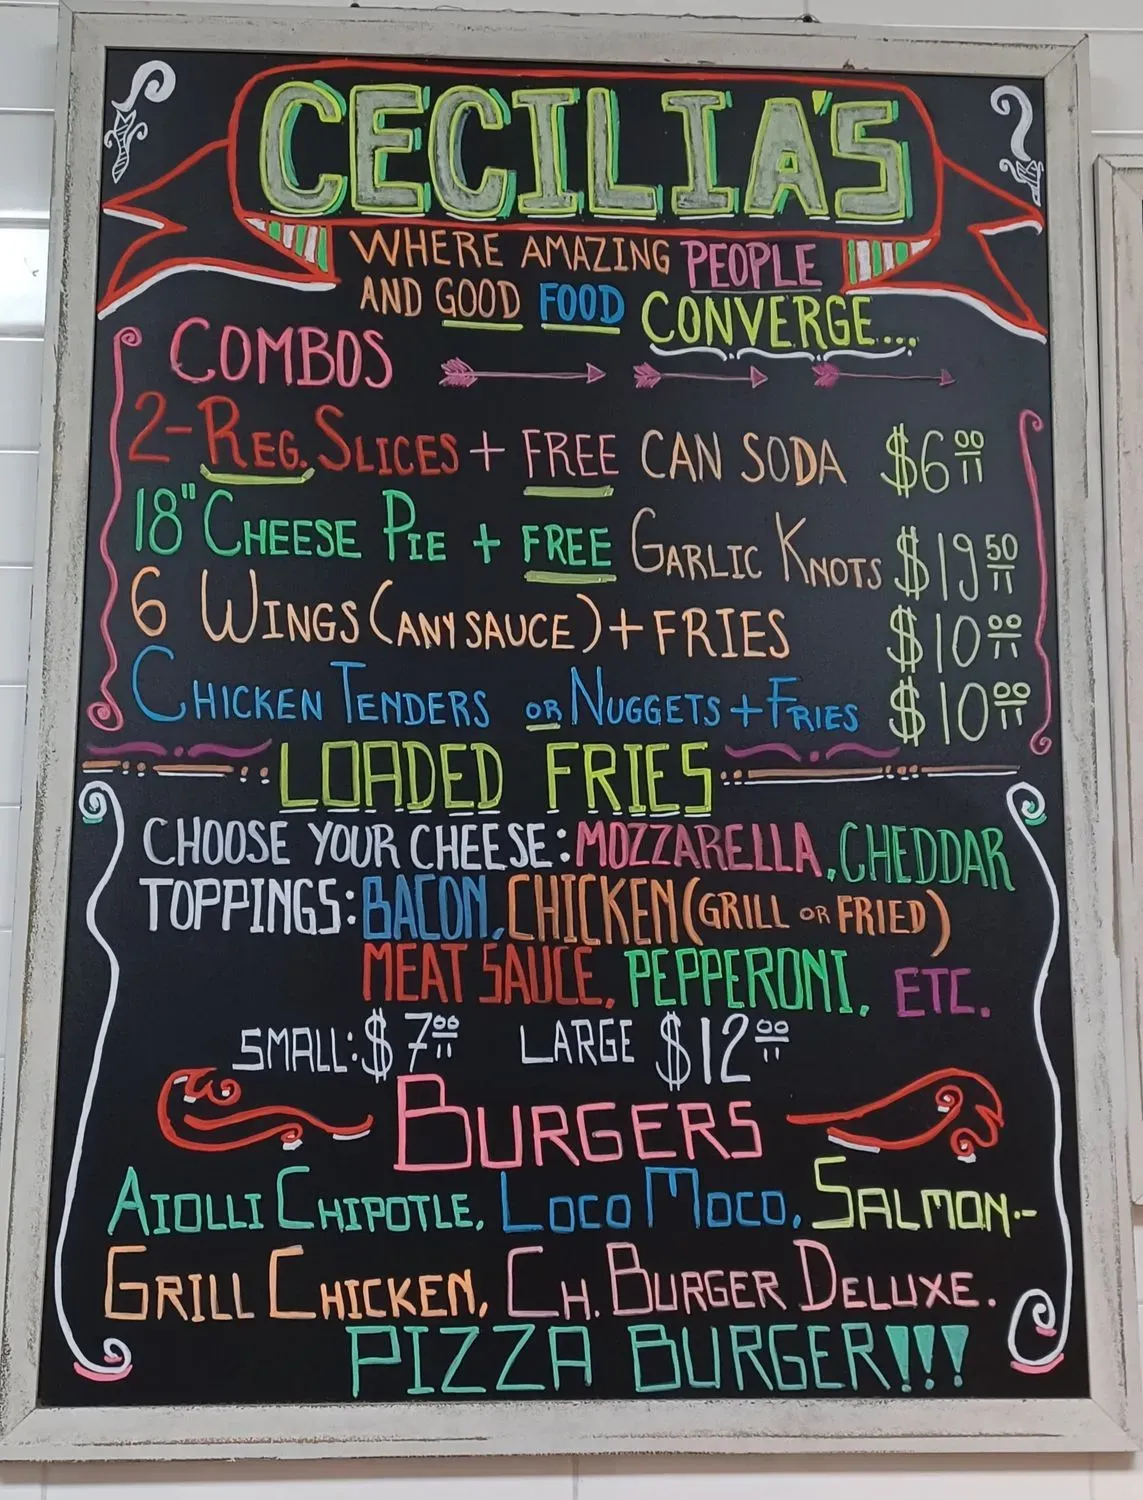 CECILIA'S
WHERE AMAZING PEOPLE
AND GOOD FOOD CONVERGE...
COMBOS
2-REG. SLICES + FREE CAN SODA $6.00
18" CHEESE PIE + FREE GARLIC KNOTS $19.50
6 WINGS (ANY SAUCE) + FRIES $10.00
CHICKEN TENDERS OR NUGGETS + FRIES $10.00
LOADED FRIES
CHOOSE YOUR CHEESE: MOZZARELLA, CHEDDAR
TOPPINGS: BACON, CHICKEN (GRILL OR FRIED)
MEAT SAUCE, PEPPERONI, ETC.
SMALL: $7.00 LARGE $12.00
BURGERS
AIOLLI CHIPOTLE, LOCO MOCO, SALMON--
GRILL CHICKEN, CH. BURGER DELUXE.
PIZZA BURGER!!!